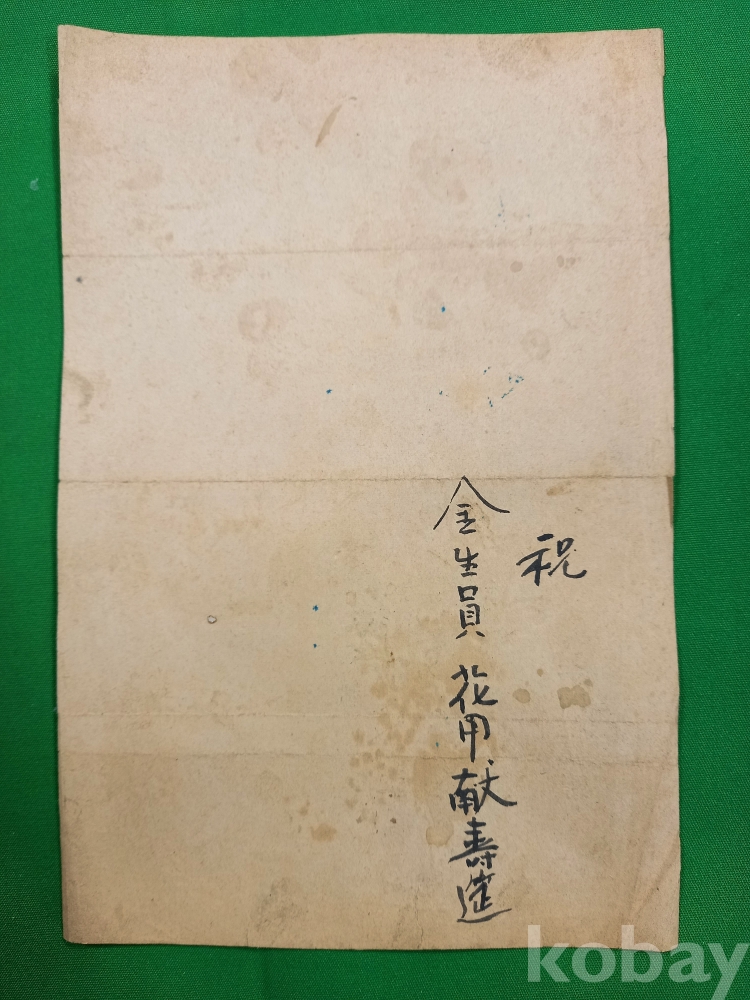 祝
金生員 花甲献壽筵
kobay